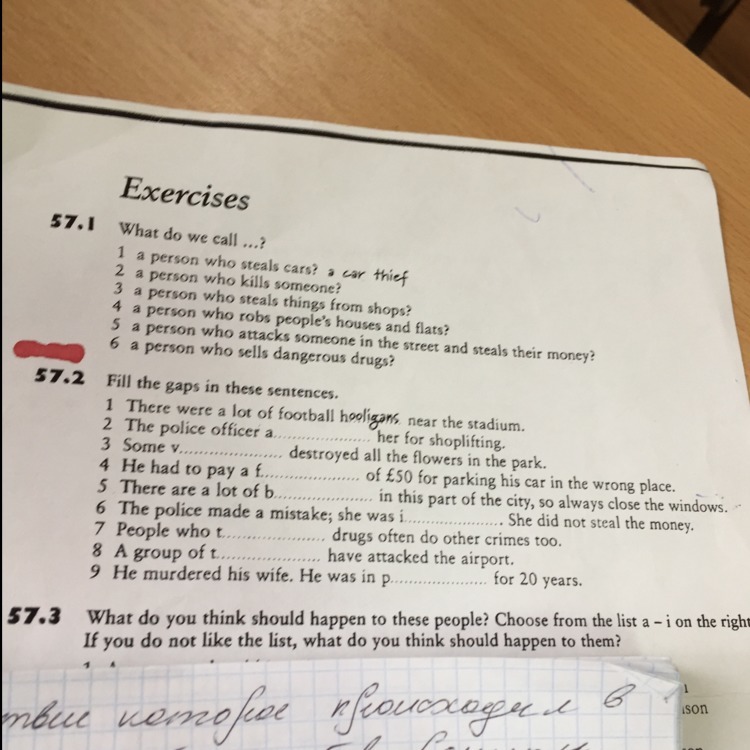 Exercises
57.1 What do we call ...?
1 a person who steals cars? a car thief
2 a person who kills someone?
3 a person who steals things from shops?
4 a person who robs people's houses and flats?
5 a person who attacks someone in the street and steals their money?
6 a person who sells dangerous drugs?
57.2 Fill the gaps in these sentences.
1 There were a lot of football hooligans near the stadium.
2 The police officer a.................... her for shoplifting.
3 Some v.................... destroyed all the flowers in the park.
4 He had to pay a f.................... of £50 for parking his car in the wrong place.
5 There are a lot of b.................... in this part of the city, so always close the windows.
6 The police made a mistake; she was i.................... . She did not steal the money.
7 People who t.................... drugs often do other crimes too.
8 A group of t.................... have attacked the airport.
9 He murdered his wife. He was in p.................... for 20 years.
57.3 What do you think should happen to these people? Choose from the list a – i on the right
If you do not like the list, what do you think should happen to them?
которое происходил в